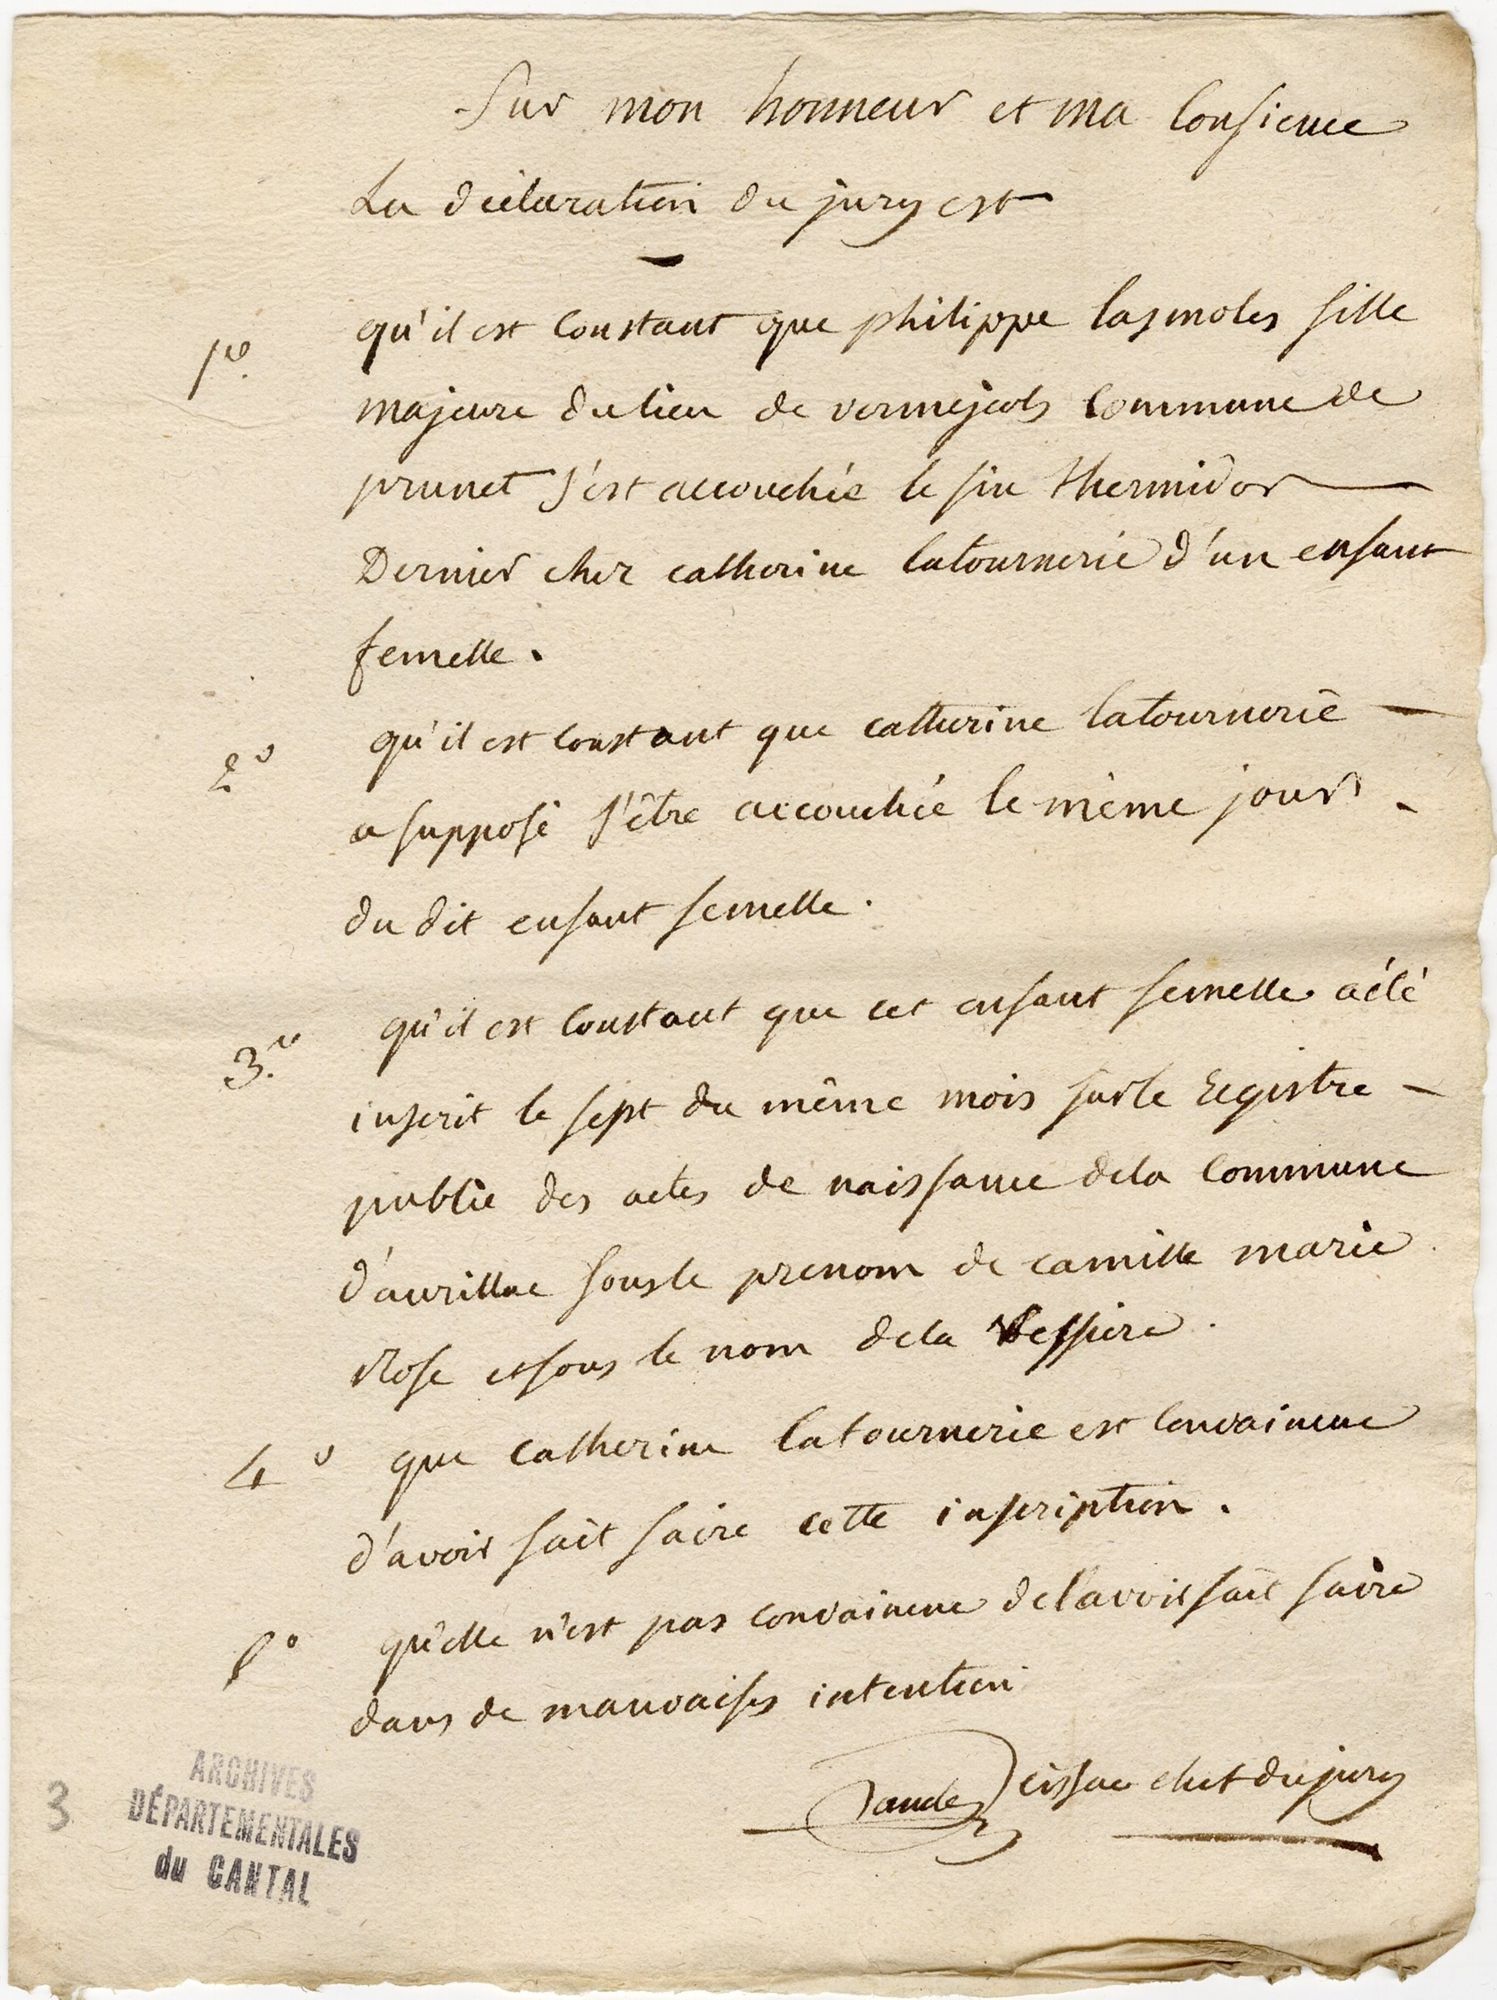 Sur mon honneur et ma Consience
La déclaration du jury est
1o. qu'il est Constant que philippe lasmoles fille
majeure du lieu de vermejols Commune de
prunet s'est accouchée le six thermidor
Dernier chez catherine latournerie d'un enfant
femelle.
2o qu'il est Constant que catherine latournerie
a supposé s'être accouchée le même jour
du dit enfant femelle.
3.o qu'il est Constant que cet enfant femelle a été
inscrit le sept du même mois sur le registre
public des actes de naissance de la Commune
d'aurillac sous le prenom de camille marie
Rose et sous le nom de la Vessiere.
4o que Catherine latournerie est Convaincue
d'avoir fait faire cette inscription.
5o qu'elle n'est pas convaincue de l'avoir fait faire
dans de mauvaises intention
Daude cissac chef du jury
3
ARCHIVES
DÉPARTEMENTALES
du CANTAL